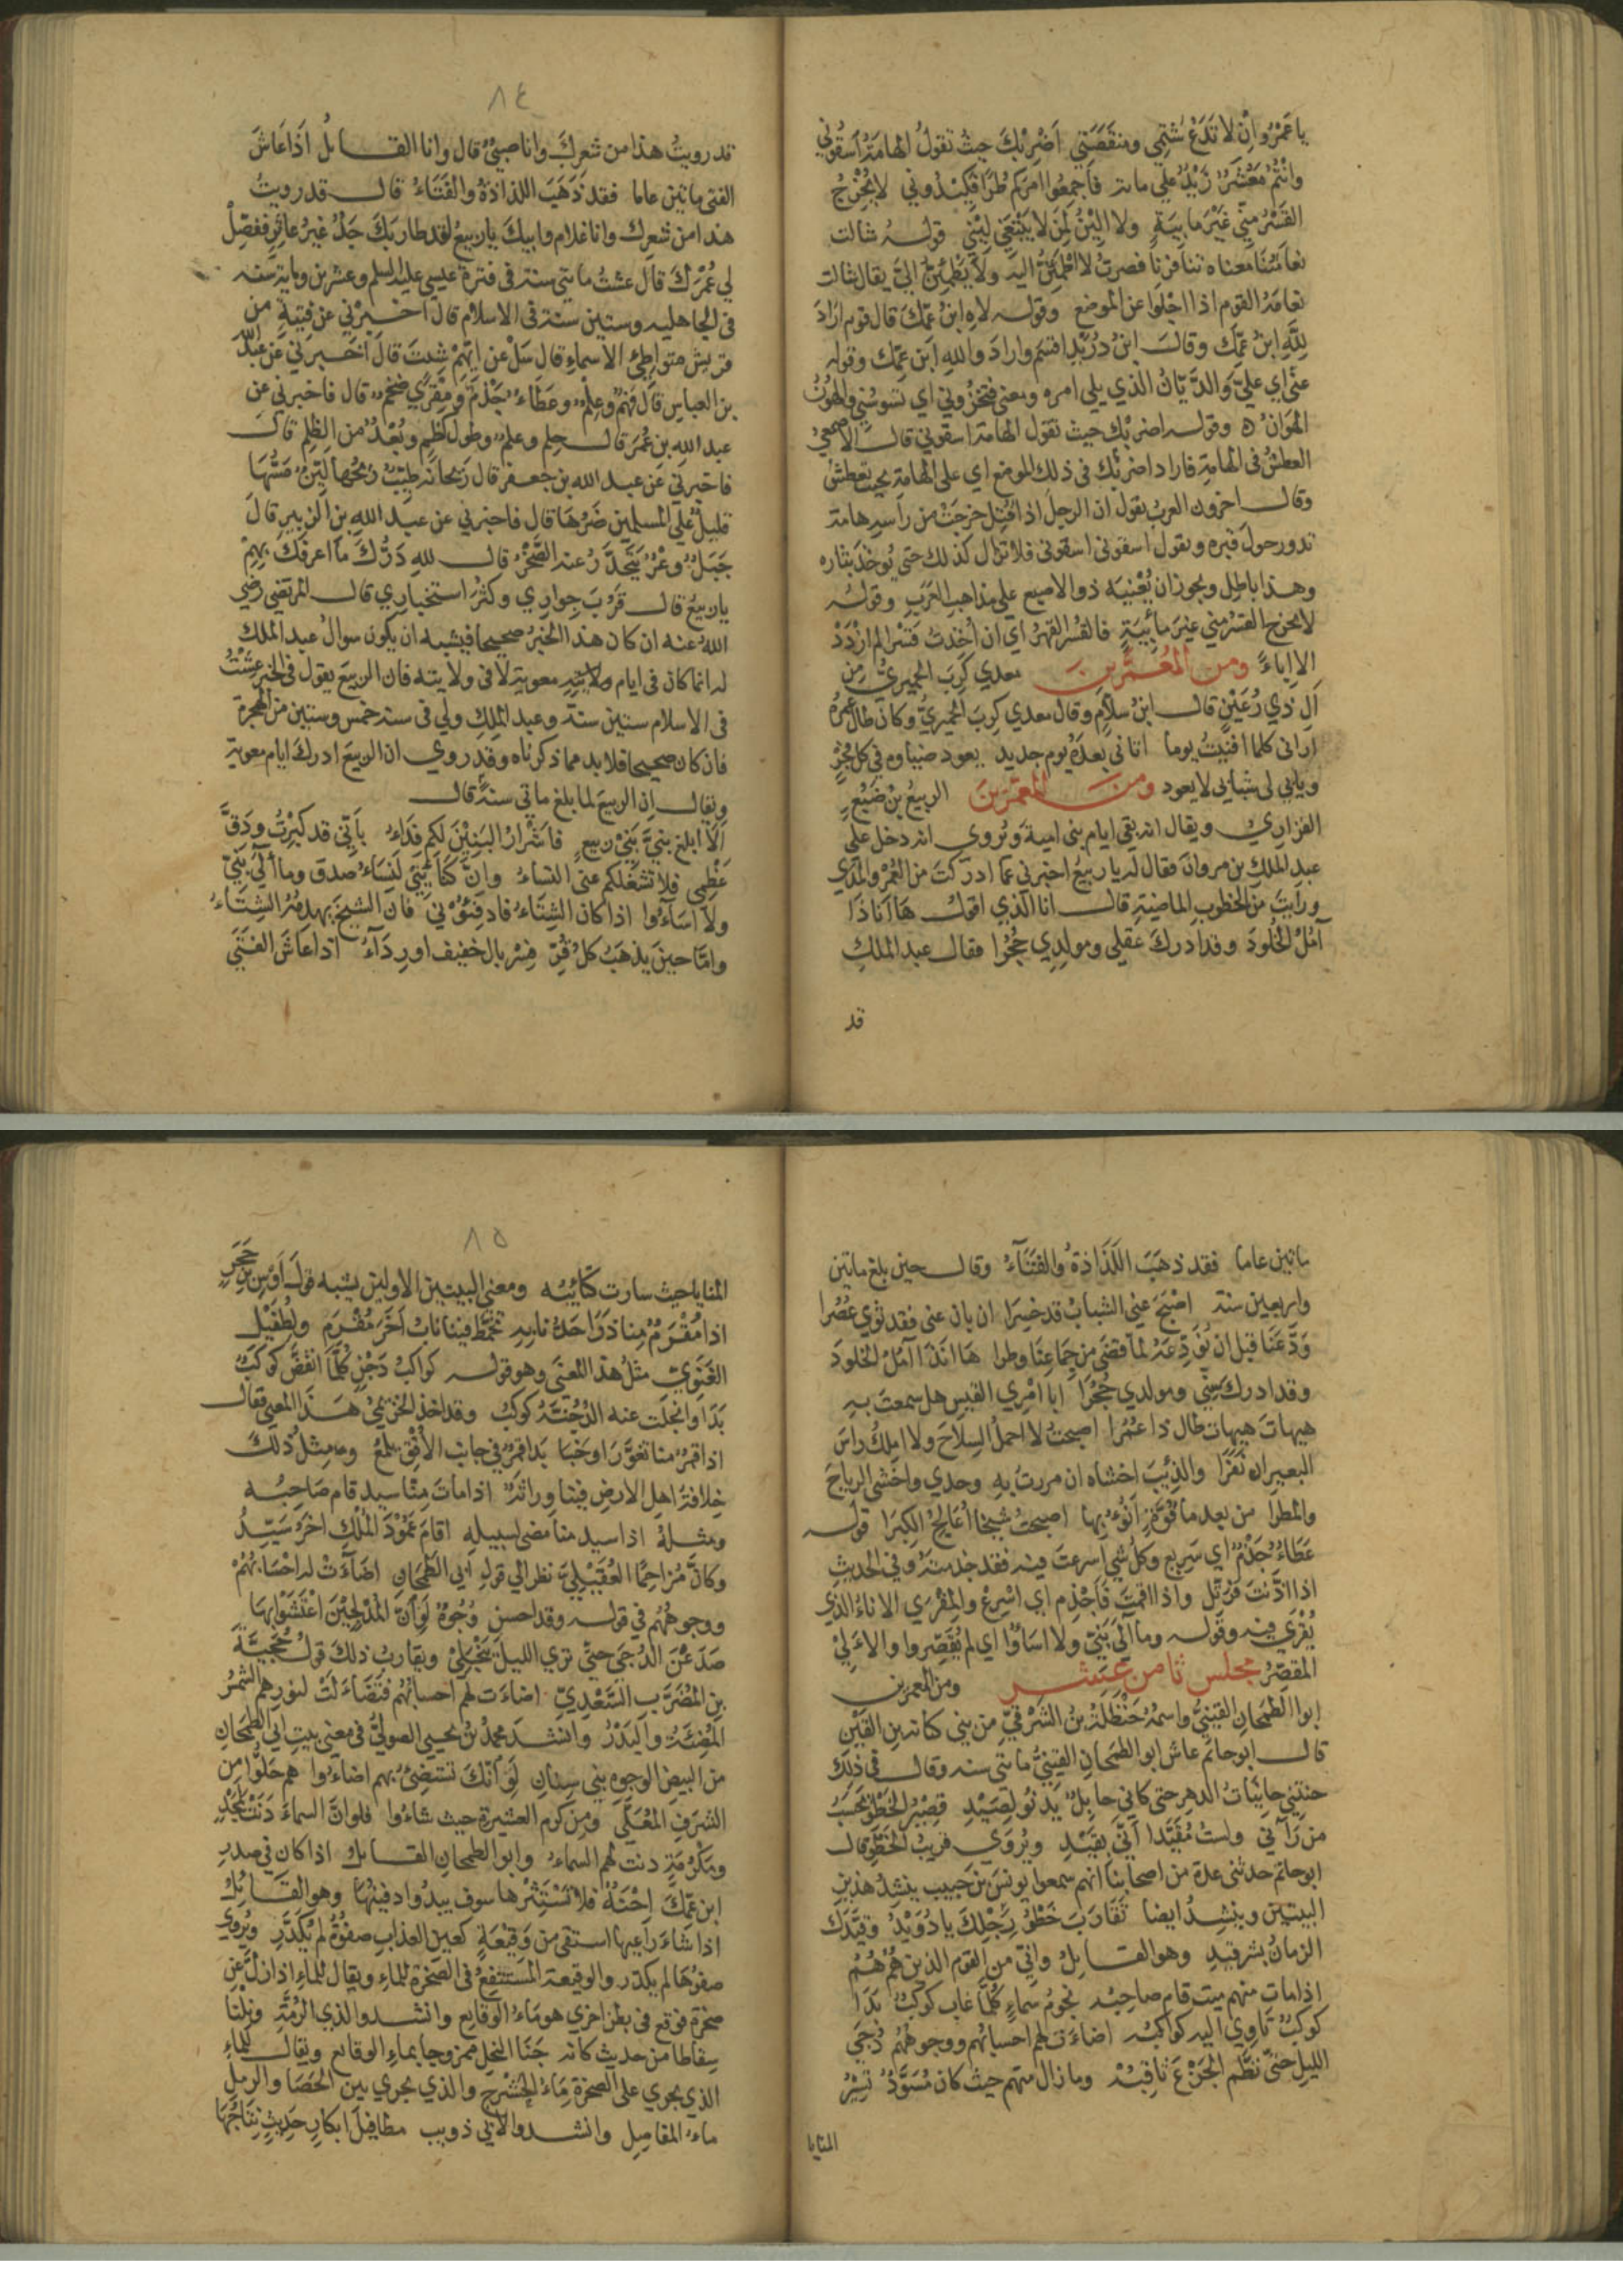 يا عَمْرُو اِنْ لا تَدَعْ شَتْمِي ومنقَصَتِي اَضْرِبْكَ حيثُ تقولُ الهامَةُ اسقُوني
وانتُمُ مَعْشَرٌ زَيْدٌ على ماىة فاَجمِعُوا امرَكم طُرّاً فكِيْدُوني لا يُخْرِجُ
القَسْرُ مِنّي غَيْرَ مابِيَةٍ ولا اَلِيْنُ لِمَنْ لا يَبْتَغِي لِيْنِي قولـه شالت
نعامَتُنَا معناه تنافرنا فصرتُ لا اطمَئِنُّ اليه ولا يَطْمَئِنُّ اليَّ يقال شالت
نعامةُ القوم اذا اجلوا عن الموضع وقولـه لاه ابنُ عمِّكَ قال قوم ارادَ
لِلَّهِ ابنُ عمِّكَ وقالـ ابنُ دُرَيْدٍ اقسَم واراد واللهِ ابن عمِّك وقوله
عنّي اي عليَّ والدَّيّانُ الذي يلي امره ومعنى فتخزُوني اي تسوسُني والهُوْنُ
الهَوَانُ ه وقولـه اضربْك حيث تقول الهامة اسقوني قالـ الاصمعيُّ
العطشُ في الهامةِ فاراد اضربْك في ذلك الموضع اي على الهامة بحيث تعطش
وقالـ اخرون العرب تقول ان الرجلَ اذا قُتِل خرجَتْ من راسِه هامة
تدور حولَ قبره وتقول اسقوني اسقوني فلا تزال كذلك حتى يُوخذ بثاره
وهذا باطِل ويجوز ان يُعْنيَه ذو الاصبع على مذاهب العَرَبِ وقولـه
لا يخرج القَسْرُ مني غيرَ مابِيَةٍ فالقَسْر القَهرُ اي ان اُخِذتُ قَسْرا لم ازْدَدْ
الا اِباءً ومن المُعَمَّرِينَ معدي كَرِبَ الحِميَريُّ مِن
آلِ ذي رُعَيْنٍ قالـ ابنُ سلاَّمٍ وقال معدي كرِبَ الحميريُّ وكان طال عمرُهُ
اراني كلما افنَيْتُ يوما اتاني بعدَهُ يوم جديد يعود ضياوه في كل فجرٍ
ويابي لي شبابي لا يعود ومنـ المعمَّرينَ الربيعُ بنُ ضَبُعٍ
الفزاريّ ويقال انه بقي ايام بني اميةَ ويُروى انه دخل على
عبد الملك بن مروانَ فقال له يا ربيعُ اخبرني عما ادركتَ من العُمْرِ والمَدي
ورايتَ من الخطوبِ الماضيةِ قالـ انا الذي اقولـ هَا اَنَاذَا
آمُلُ الخُلُودَ وقد ادركَ عقلي ومولدِي حُجُرا فقال عبد الملكِ
قد
٨٤
قد رويتُ هذا من شعرِكَ وانا صبيٌّ قال وانا القـايلُ اذَا عَاشَ
الفتى مايتين عاما فقد ذَهَبَ اللذاذةُ والفَتَاءُ قالـ قد رويتُ
هذا من شعرك وانا غلام وابيكَ يا ربيعُ لقد طار بكَ جَدٌّ غيرُ عاثِرٍ ففَصِّلْ
لي عُمْرَكَ قال عشتُ مايتي سنة في فترة عيسى عليه السلم وعشرين وماية سنه
في الجاهليه وستين سنة في الاسلام قال اخـبرْني عن فِتيَةٍ من
قريش متواطِيُ الاسماءِ قال سَلْ عن ايّهِمْ شِئتَ قال اَخبِرني عن عبد الله
بن العباسِ قال فَهْمٌ وعِلْمٌ وعَطَاءٌ جَذْمٌ ومِقْرًي ضَخْمٌ قال فاخبرني عن
عبد اللهِ بن عُمَرَ قالـ حِلم وعلم وطول كَظم وبُعْدٌ من الظلم قالـ
فاخبرني عَن عبد الله بن جعفر قال رَيحانة طيِّبٌ رِيحُها لَيِّنٌ مَسُّها
قليلٌ على المسلمين ضَرُّهَا قال فاخبرني عن عبد الله بن الزبيرِ قالَ
جَبَلٌ وعْرٌ يتحَدَّرُ عنه الصَّخْرُ قالـ للهِ دَرُّكَ ما اعرفَكَ بهِمْ
يا ربيعُ قالـ قَرُبَ جِواري وكثُر استخباري قالـ المرتضي رضي
اللهُ عنه ان كان هذا الخبرُ صحيحا فيشبه ان يكون سوالُ عبد الملك
له انما كان في ايام معوية لا في ولايته فان الربيعَ يقول في الخبر عِشْتُ
في الاسلام ستين سنة وعبد الملِكِ ولي في سنة خمس وستين من الهجرة
فان كان صحيحا فلا بد مما ذكرناه وقد روي ان الربيعَ ادركَ ايامَ معوية
ويقالـ اِن الربيعَ لما بلغ ماتي سنةً قالـ
اَلا ابلغ بنيَّ بَنِيْ ربيعٍ فاَشْرارُ البَنِيْنَ لكم فِدَاءُ باَنّي قد كَبِرْتُ ودَقَّ
عَظْمِي فلا تشغَلكم عنّي النساءُ وانّ كنَائِنِي لنِسَاءُ صدق وما اَلّي بَنِيّ
ولا اسَآءُوا اذا كان الشِتَاءُ فادفِئُوني فان الشيخَ يهدمُه الشِتَاءُ
وامّا حينَ يذهَبُ كلُّ قُرٍّ فسِرْبال خفيف او رِدَآءُ اذا عَاشَ الفَتَى
مايتين عاما فقد ذهَبَ اللَذَاذةُ والفَتَآءُ وقالـ حين بلغ مايتين
واربعين سنة اصْبَحَ عني الشبابُ قد حَسَرا ان بان عني فقد ثوي عُصُرا
ودَّعَنَا قبل ان نُوَدِّعَهُ لمّا قضَى من جِمَاعِنَا وطرا هَا انَذَا آمُلُ الخلودَ
وقد ادرك سِنّي ومولدي حُجُرَا ابا امْرِي القيسِ هل سمعتَ به
هيهاتَ هيهات طال ذا عُمُرَا اصبحتُ لا احملُ السلاحَ ولا املكُ راسَ
البعيرِ ان نَفَرَا والذئِبَ اخشاه ان مررتُ به وحدي واخشي الرياحَ
والمطرا من بعد ما قُوَّةٍ اَنُوءُ بِها اصبحتُ شيخا اُعَالِجُ الكِبَرَا قولـه
عَطَاءٌ جَذْمٌ اي سَريع وكلُّ شي اسرعتَ فيه فقد جذمتَهُ وفي الحديثِ
اذا اذَّنْتَ فرَتِّل واذا اقمتَ فاَجْذِم اي اَسْرِعْ والمِقرَي الاناءُ الذي
يُقْرَي فيه وقوله وما اَلّي بَنِيّ ولا اسَاؤُا اي لم يُقَصِّروا والاۤلي
المُقصِّرُ مجلس ثامن عشر ومن المعمرين
ابوا الطمَحَانِ القينيُّ واسمُهُ حَنْظَلَةُ بنُ الشَرْقيِّ من بني كنانة بن القَيْن
قالـ ابو حاتم عاش ابو الطمَحانِ القينيُّ مايتي سنه وقالـ في ذلِكَ
حنتني حانِيَاتُ الدهرِ حتى كاني حابلٌ يَدنُو لِصَيْدِ قصِيْرُ الخَطْوِ يَحسَبُ
من رَآني ولستُ مُقَيَّدا اَنّي بقَيْدِ ويُرْوَي قريبُ الخطوِ قالـ
ابو حاتم حدثني عدة من اصحابنا انهم سمعوا يونسَ بنَ حَبيب ينشد هذين
البيتين وينشِدُ ايضا تَقَارَبَ خَطْوُ رِجْلِكَ يا دُوَيْدُ وقيَّدَكَ
الزمانُ بشر قيدِ وهو القـايلُ واِنّي من القوم الذين هُمُ هُمُ
اذا مات منهم ميت قام صاحِبُه نجُومُ سماءٍ كُلَّمَا غاب كوكبٌ بَدَا
كوكبٌ تَاوِي اليه كواكبُه اضاءَت لهم احسابُهم ووجوهُهُم دُجَى
الليل حتىّ نظَّم الجَزْعَ ثاقِبُهْ وما زال منهم حيثُ كان مُسَوَّدٌ تسِيْرُ
المنايا
٨٥
المنايا حيث سارت كتَائِبُه ومعني البيتين الاولين يشبه قولَ اَوْسِ بنِ حَجَرٍ
اذا مُقْرَمٌ مِنا ذَرَا حَدُّ نابِهِ تخمَّطَ فينا نابُ آخَرَ مُقْرَمِ ولِطُفَيْل
الغَنَوِيّ مثلُ هذا المعنَي وهو قولـه كواكبُ دَجْنٍ كُلَّمَا انقَضَّ كوكبٌ
بَدَا وانجلَت عنه الدُجُنَّةُ كوكبُ وقد اخذ الخزيميُّ هَـذا المعنَي فقالـ
اذا قمرٌ منا تغوَّرَ او خَبَا بَدا قمرٌ في جانِب الاُفْقِ يَلمَعُ ومثل ذلِكَ
خِلافةُ اهلِ الارضِ فينا وِراثَةٌ اذا ماتَ مِنّا سيد قام صَاحِبُه
ومثلـهُ اذا سيد منا مضى لسبيلِهِ اقامَ عَمُوْدَ المُلْكِ اخَرُ سَيِّدُ
وكانَّ مُزاحِمًا العُقَيْلِيَّ نظر الي قولِ ابي الطمَحَانِ اضَآءَتْ لهم احْسَابُهُمْ
ووجوهُهُم في قولـه وقد احسن وُجُوهٌ لوَ اَنَّ المُدْلِجِيْنَ اعْتَشَوْا بِهَا
صَدَعْنَ الدُجَي حتىَّ تري الليلَ يَنْجَلِيْ ويقارِبُ ذلكَ قولُ حُجَيَّةَ
بنِ المُضَرَّبِ السَّعْدِيّ اضاءَت لهم احسابُهُم فتَضَاءَلَتْ لنورِهم الشَمْسُ
المُضِيئَةُ والبَدْرُ وانشدَ محمدُ بنُ يحيى الصوليُّ في معني بيتِ ابي الطمَحانِ
من البيضِ الوجوهِ بَني سِنانٍ لَو اَنّكَ تستضِئُ بهم اضاءُوا هم حَلُّوا مِنَ
الشرَفِ المُعَلَّي ومِن كرَمِ العشيرةِ حيث شاءُوا فلو انَّ السماءَ دَنَتْ لمجْدٍ
ومَكْرُمَةٍ دنت لهمُ السماءُ وابو الطمحانِ القـايلُ اذا كان في صدرِ
ابن عمِّكَ اِحْنَةٌ فلا تَسْتَثِرْها سوف يبدُوا دفينُهَا وهو القـايلُ
اذا شاءَ راعِيها استقي من وَقيْعَةٍ كعين الغرابِ صفوُهُ لم يُكَدَّرِ ويُروي
صفوُها لم يكدّر والوقيعة المُستَنقَعُ في الصَخرة للماءِ ويقال للماءِ اذا زَلَّ عن
صخرةٍ فوقع في بطن اخري هو مَاءُ الوقايعِ وانشدوا لذي الرُمَّةِ ونِلْنا
سِقاطا من حديث كانه جَنَا النحل ممزوجا بماءِ الوقايع ويقالـ للماءِ
الذي يجري على الصخرة مَاءُ الحَشْرَجِ والذي يجري بين الحَصَا والرملِ
ماءُ المفاصِلِ وانشدوا لابي ذويب مطافِيلَ ابكارٍ حَدِيثٍ نِتَاجُهَا